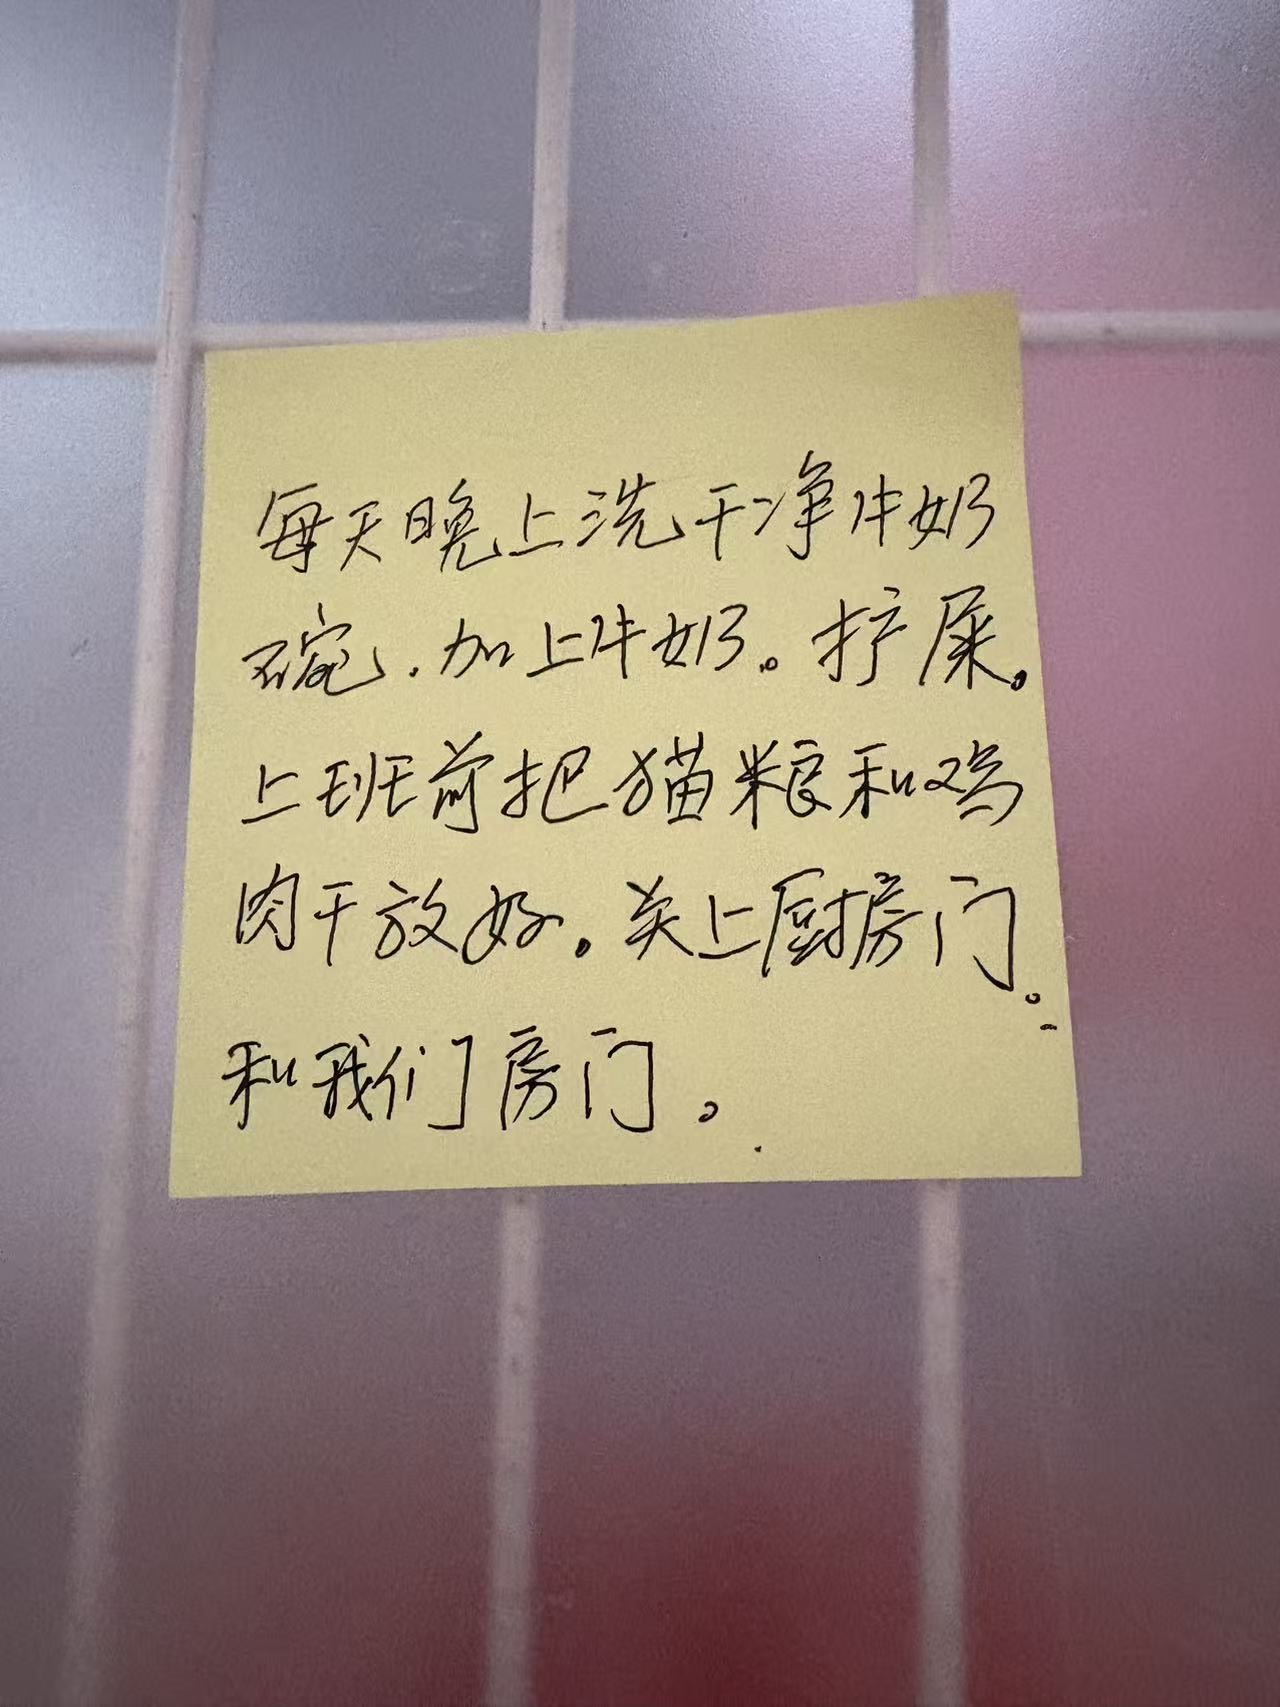 每天晚上洗干净牛奶
碗，加上牛奶。护屎。
上班前把猫粮和鸡
肉干放好。关上厨房门。
和我们房门。